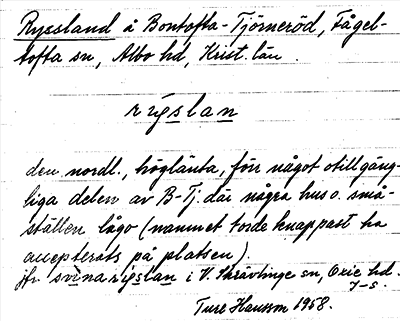 Ryssland å Bontofta-Tjörneröd, Fågel-
tofta sn, Albo hd, Krist. län.
rɨgslan
den nordl., höglänta, förr något otillgäng-
liga delen av B-Tj. där några hus o. små-
ställen lågo (namnet torde knappast ha
accepterats på platsen).
jfr svinarigslan i V. Skrävlinge sn, Oxie hd.
J-s.
Ture Hansson 1958.